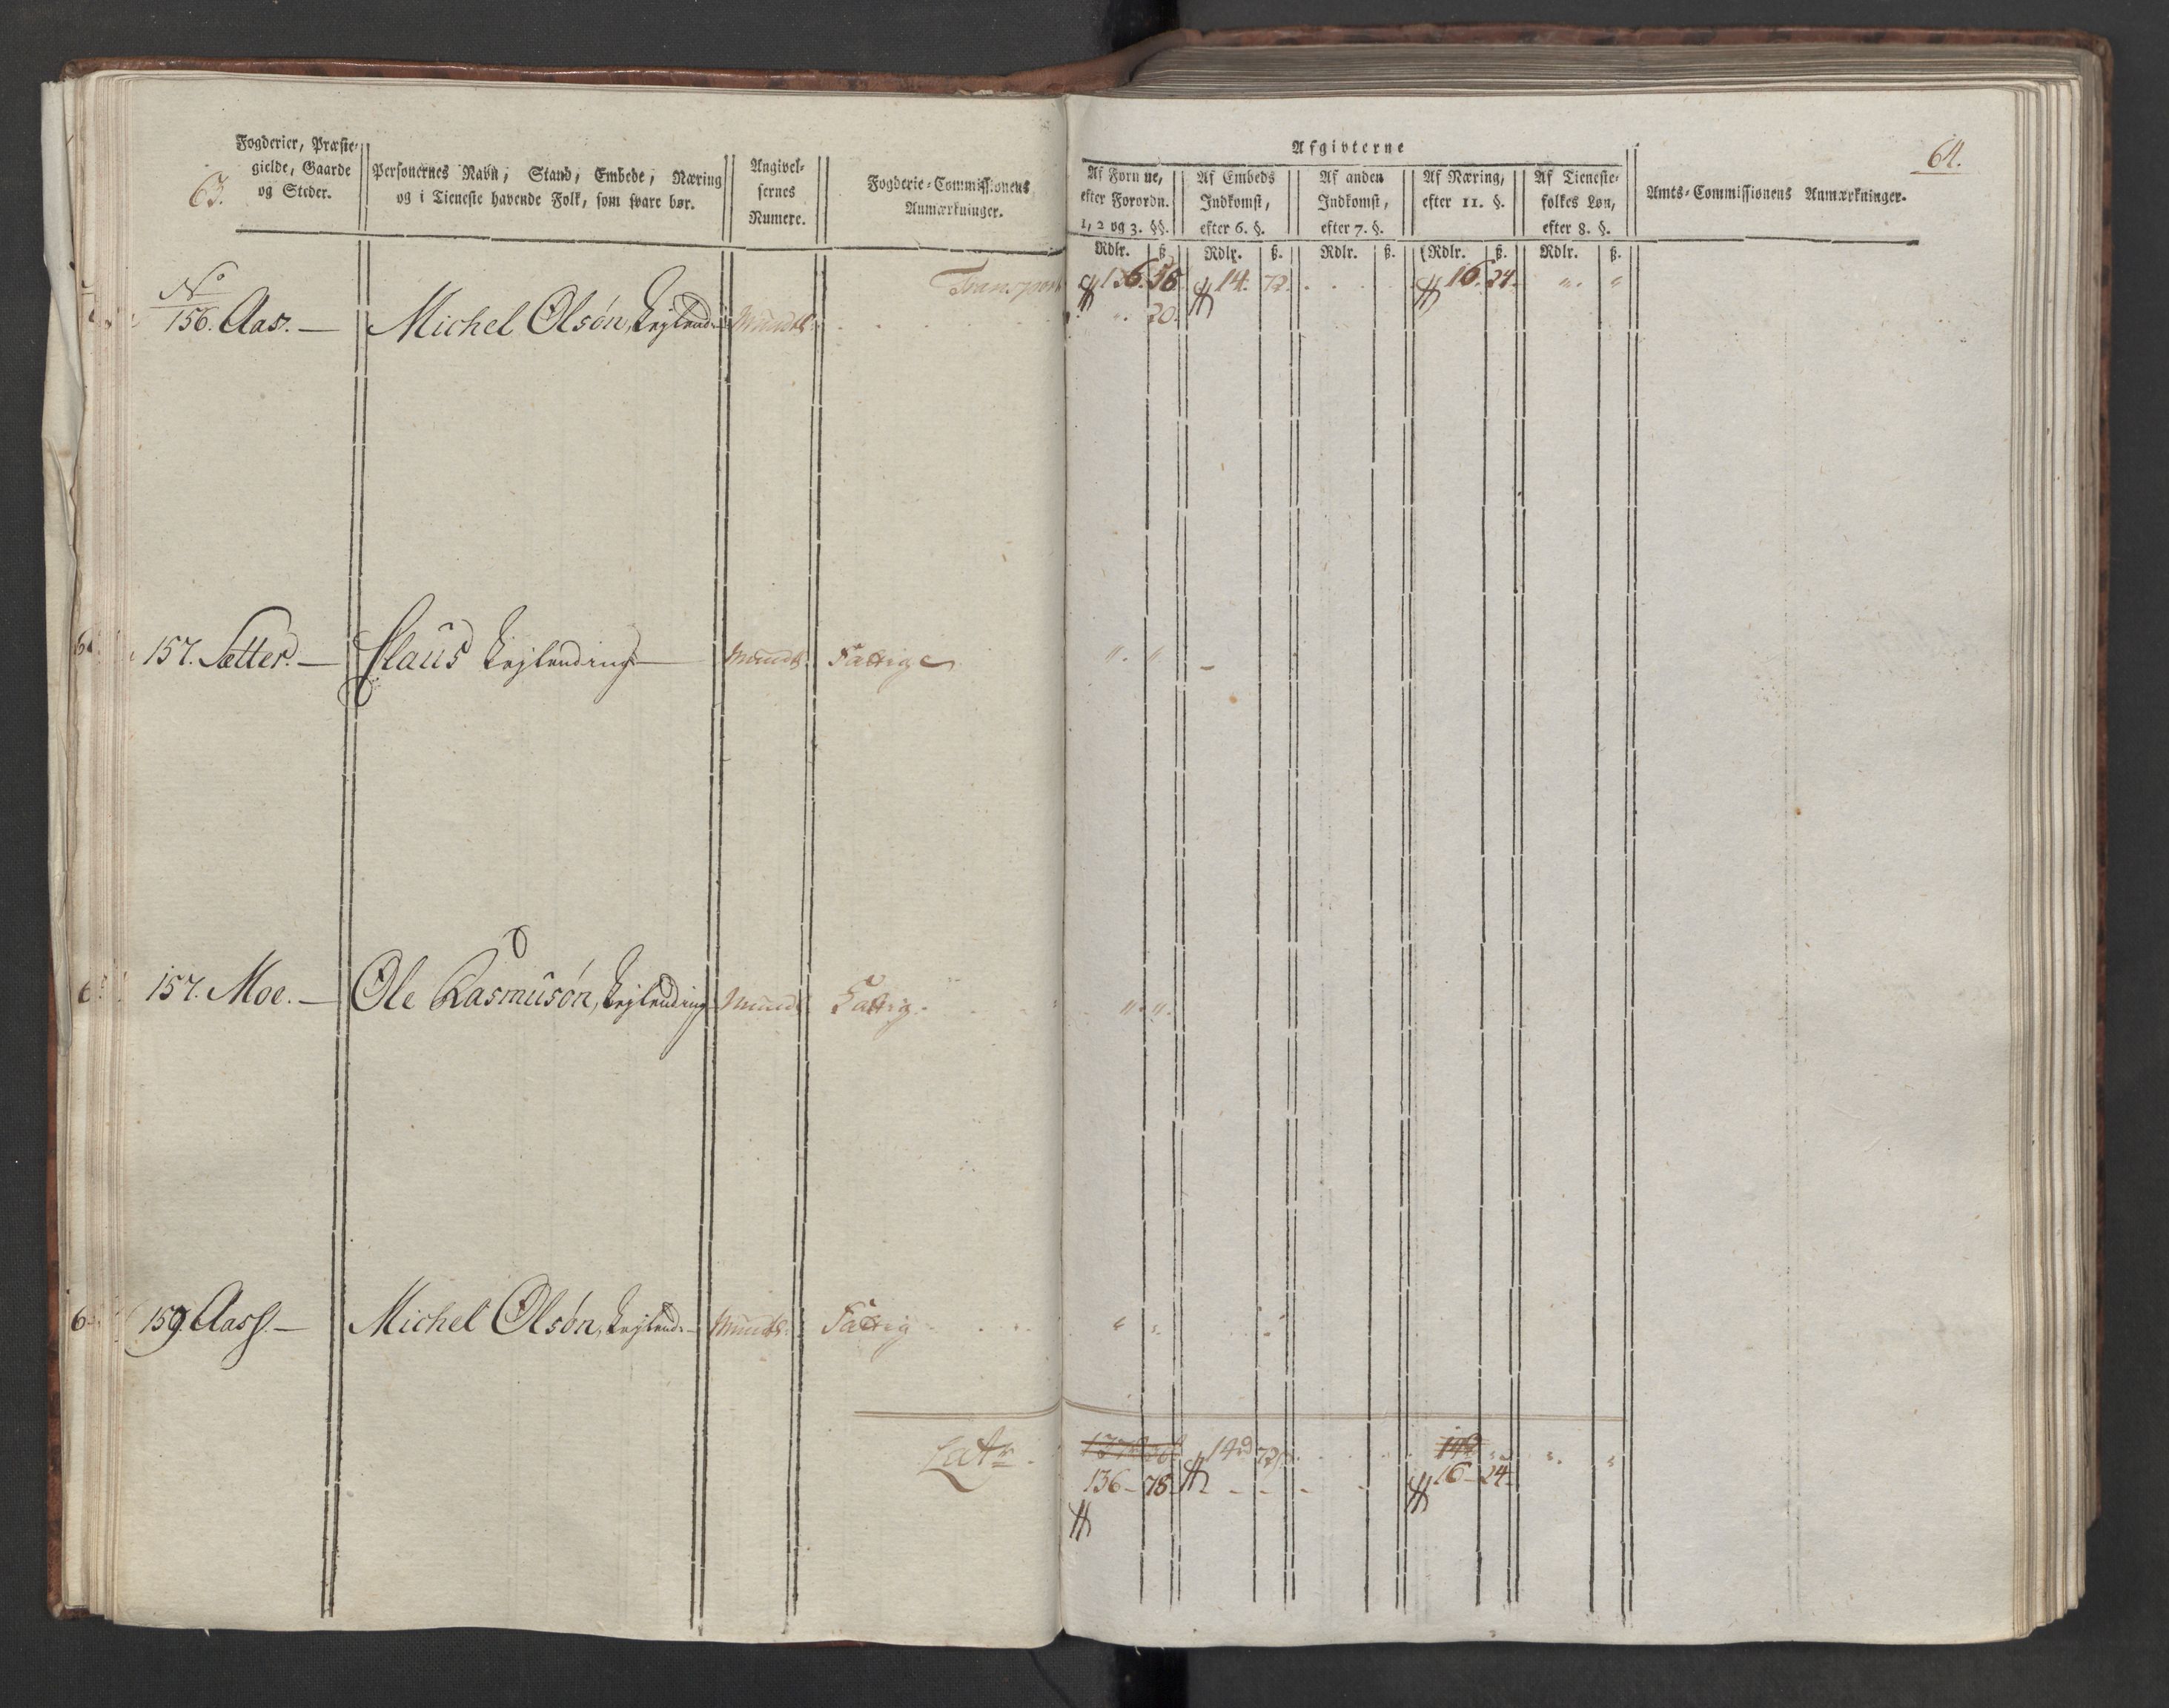 63.
Fogderier, Præste-
gielde, Gaarde
og Steder.
Personernes Navn, Stand, Embede, Næring
og i Tieneste havende Folk, som svare bør.
Angivel-
sernes
Numere.
Fogderie-Commissionens
Anmærkninger.
Afgivterne
64.
Af Formue,
efter Forordn.
1, 2 og 3. §§.
Af Embeds
Indkomst,
efter 6. §.
Af anden
Indkomst,
efter 7. §.
Af Næring,
efter 11. §.
Af Tieneste-
folkes Løn,
efter 8. §.
Amts-Commissionens Anmærkninger.
Rdlr. ß. Rdlr. ß. Rdlr. ß. Rdlr. ß. Rdlr. ß.
Transport 136. 58. 14. 72. 16. 24. " "
No
156. Aas. — Michel Olsøn, Lejlend: Mundtl: " 20.
157. Sætter. — Claus Lejlending — Mundtl. Fattig " "
157. Moe. — Ole Rasmusøn, Lejlending Mundtl Fattig. " "
159 Aass. — Michel Olsøn, Lejlend: Mundtl: Fattig " "
Latr. 14rd 72ß " "
136 - 78 16 - 24